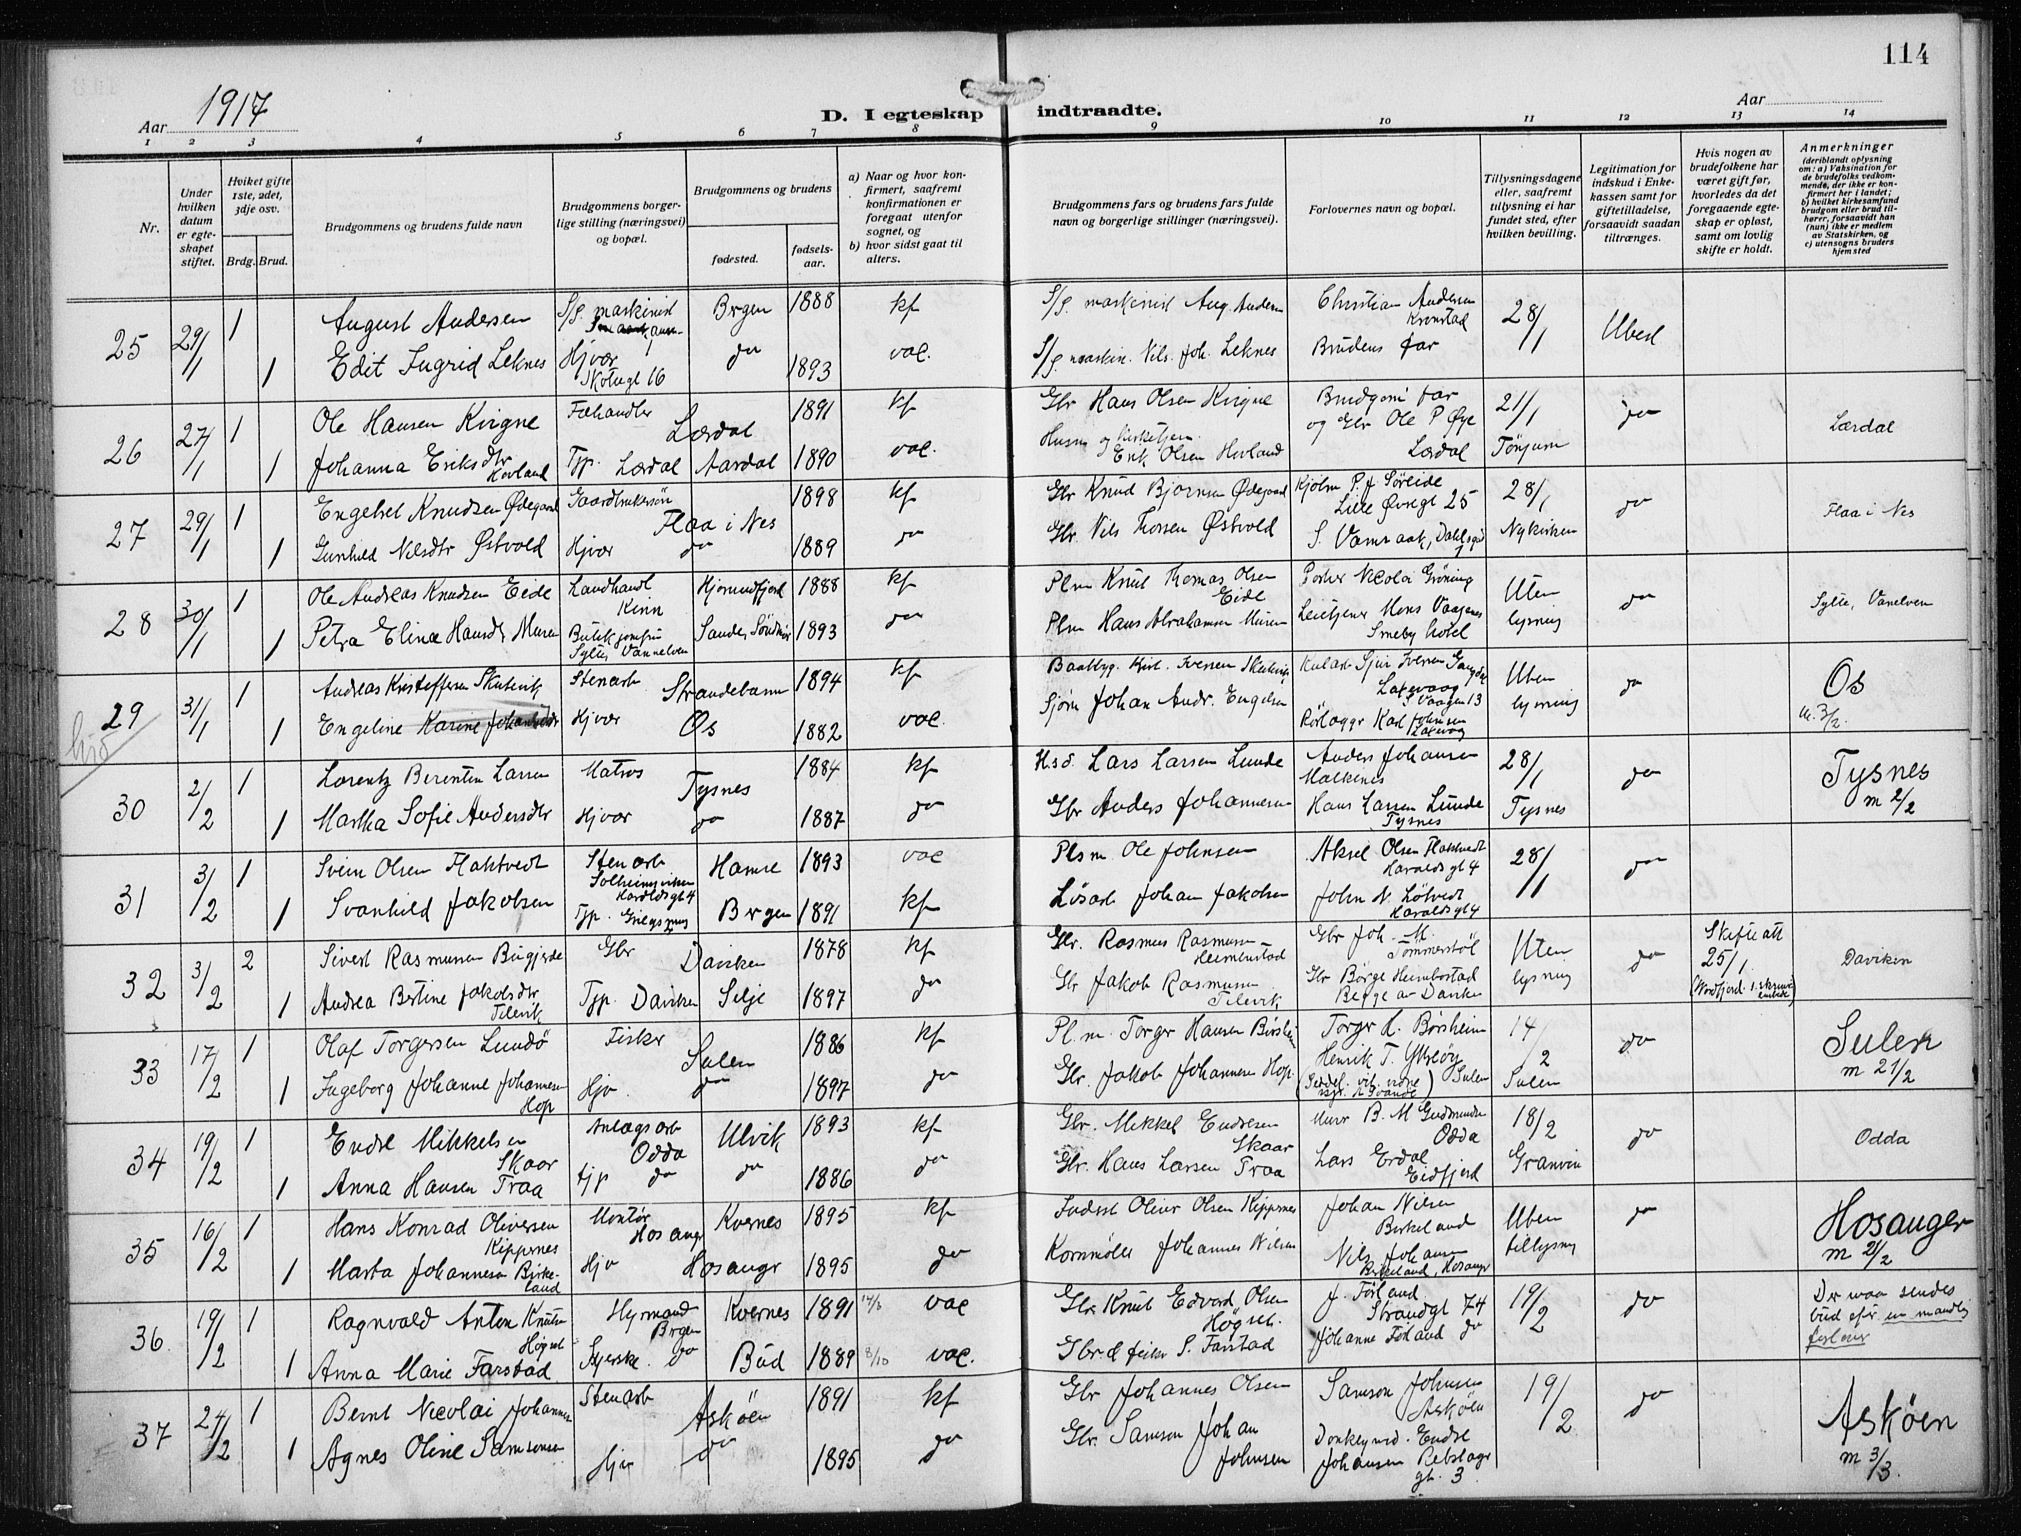 114
Aar 1917
D. I egteskap indtraadte.
Aar
1 2 3 4 5 6 7 8 9 10 11 12 13 14
Nr.
Under hvilken datum er egteskapet stiftet.
Hviket gifte 1ste, 2det, 3dje osv.
Brdg. Brud.
Brudgommens og brudens fulde navn
Brudgommens borgerlige stilling (næringsvei) og bopæl.
Brudgommens og brudens
fødested.
fødselsaar.
a) Naar og hvor konfirmert, saafremt konfirmationen er foregaat utenfor sognet, og
b) hvor sidst gaat til alters.
Brudgommens fars og brudens fars fulde navn og borgerlige stillinger (næringsvei).
Forlovernes navn og bopæl.
Tillysningsdagene eller, saafremt tillysning ei har fundet sted, efter hvilken bevilling.
Legitimation for indskud i Enkekassen samt for giftetilladelse, forsaavidt saadan tiltrænges.
Hvis nogen av brudefolkene har været gift før, hvorledes da det foregaaende egteskap er opløst, samt om lovlig skifte er holdt.
Anmerkninger
(deriblandt oplysning om: a) Vaksination for de brudefolks vedkommende, der ikke er konfirmert her i landet; b) hvilket kirkesamfund brudgom eller brud tilhører, forsaavidt han (hun) ikke er medlem av Statskirken, og c) utensogns bruders hjemsted
25 29/1 1 August Andersen S/s. maskinist Brgen 1888 kf S/s. maskinist Aug. Andersen Christian Andersen Kronstad 28/1 Ubest
1 Edit Ingrid Leknes Hjvær Skotugt 16 do 1893 vac. S/s maskin. Nils Joh. Leknes Brudens far
26 27/1 1 Ole Hansen Kvigne Fæhandler Lærdal 1891 kf Gbr Hans Olsen Kvigne Brudgoms far og Gbr Ole P Øye Lærdal 21/1 do Lærdal
1 Johanna Eriksdtr Hovland Tjp. Lærdal Aardal 1890 vac. Husm og kirketjen Erik Olsen Hovland Tönjum
27 29/1 1 Engebret Knudsen Ødegaard Gaardbrukersön Flaa i Nes 1898 kf Gbr Knud Bjornsen Ødegaard Kjøbm P. J Söreide Lille Øvregt 25 28/1 do Flaa i Nes
1 Gunhild Nilsdtr Østvold Hjvær do 1889 do Gbr. Nils Thorsen Østvold Nykirken
28 30/1 1 Ole Andreas Knudsen Eide Landhandl Kinn Hjorundfjord 1888 kf Plm Knut Thomas Olsen Eide Porter Nicolai Gröning Uten lysning do Sylte, Vanelven
1 Petra Eline Hansdr Muren Butikjomfru Sylte, Vannelven Sande, Söndmör 1893 do Plm Hans Abrahamsen Muren Mons Vaagenes Smeby hotel
29 31/1 1 Andreas Kristoffersen Skutevik Stenarb Strandebarm 1894 kf Laxevaag Uten lysning do Os
1 Engeline Karine Johansdtr Hjvær Os 1882 vac. Sjöm Johan Andr. Engelsen Rörlægger Karl Johnsen Laxevaag m. 3/2.
30 2/2 1 Lorentz Berentin Larsen Matros Tysnes 1884 kf Hsd. Lars Larsen Lunde Anders Johansen Malkenes 28/1 do Tysnes
1 Martha Sofie Andersdtr Hjvær do 1887 do Gbr Anders Johannesen Hans Larsen Lunde Tysnes Tysnes m 2/2
31 3/2 1 Svein Olsen Flaktvedt Stenarb Solheimsviken Haraldsgt 4 Hamre 1893 vac Plsm. Ole Johnsen Aksel Olsen Flaktvedt Haraldsgt 4 28/1 do
1 Svanhild Jakobsen Tjp. Brgen 1891 kf Lösarb Johan Jakobsen John N. Lötvedt Haraldsgt 4
32 3/2 2 Sivert Rasmusen Gbr Daviken 1878 kf Gbr. Rasmus Rasmusen Gbr Joh. M. Tömmerstöl Uten lysning do Skifte att 25/1. Daviken
1 Andrea Bertine Jakobsdtr Tilevik Tjp. Daviken Selje 1897 do Gbr Jakob Rasmusen Tilevik Gbr Börge Heimbostad Begge av Daviken
33 17/2 1 Olaf Torgersen Lundö Fisker Sulen 1886 kf Pl. m. Torger Hansen Börsheim Torger H. Börsheim 14/2 do Sulen
1 Ingeborg Johanne Johannesen Hop Hjv do 1897 do Gbr. Jakob Johannesen Hop Henrik T. Ytreöy Sulen Sulen m 21/2
34 19/2 1 Endre Mikkelsen Skaar Anlægsarb Odda Ulvik 1893 kf Gbr. Mikkel Endresen Skaar Murer B. M Gudmundsen Odda 18/2 do Odda
1 Anna Hansen Traa tjp do do 1886 do Gbr. Hans Larsen Traa Lars Erdal Eidfjord Granvin
35 16/2 1 Hans Konrad Oliversen Kippernes Montör Hosangr Kvernes 1895 kf Indsst Oliver Olsen Kippernes Johan Nilsen Birkeland Uten tillysning do Hosanger
1 Marta Johannesen Birkeland Hjv Hosangr 1895 do Kornmöller Johannes Nilsen Nils Johansen Birkeland, Hosangr m 2/2
36. 19/2 1 Ragnvald Anton Knutsen Högset Hyrmand Brgen Kvernes 1891 vac Gbr. Knut Edvard Olsen Högset. J. Förland Strandgt 74 19/2 do Der maa sendes bud efter en mandlig forlover
1 Anna Marie Farstad Syerske do Bud 1889 8/10 vac. S. Farstad Johanne Förland do
37 24/2 1 Bernt Nicolai Johannes Stenarb Asköen 1891 kf Gbr Johannes Olsen Samson Johnsen Asköen 19/2 do Asköen
1 Agnes Oline Samsonsen Hjv do 1895 do Gbr. Samson Johan Johnsen Donkeymd. Endre Johansen Rebslagr gt. 3 m 3/3.